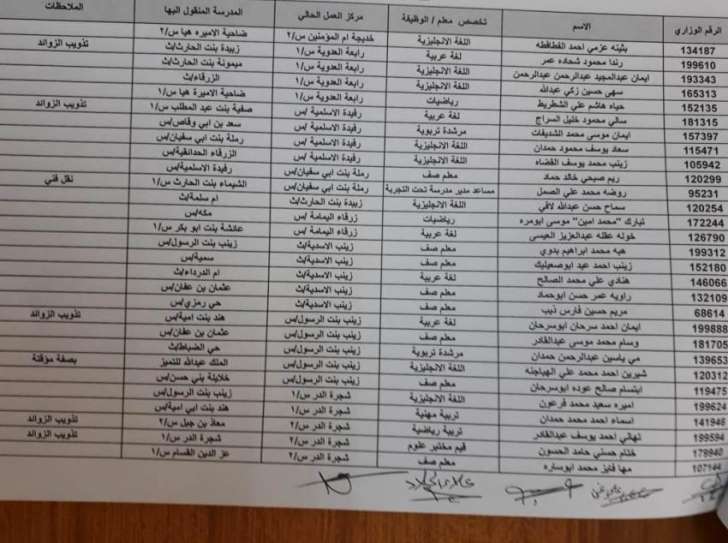 الرقم الوزاري الاسم تخصص معلم / الوظيفة مركز العمل الحالي المدرسة المنقول اليها الملاحظات
134187 بثينه عزمي احمد القطاطفه اللغة الانجليزية خديجة ام المؤمنين س/٢ ضاحية الاميره هيا س/٢
199610 رندا محمود شحاده عمر لغة عربية رابعة العدوية س/١ زبيدة بنت الحارث/ث تذويب الزوائد
193343 ايمان عبدالمجيد عبدالرحمن عبدالرحمن اللغة الانجليزية رابعة العدوية س/١ ميمونة بنت الحارث/ث
165313 سهى حسين زكي عبدالله اللغة الانجليزية رابعة العدوية س/١ الزرقاء/ث
152135 حياه هاشم علي الشطريط رياضيات رابعة العدوية س/١ ضاحية الاميرة هيا س/١
181315 سالي محمود خليل السراج لغة عربية رفيدة الاسلمية /س صفية بنت عبد المطلب س/١ تذويب الزوائد
157397 ايمان موسى محمد الشديفات مرشدة تربوية رفيدة الاسلمية /س سعد بن ابي وقاص/س
115471 سعاد يوسف محمود حمدان اللغة الانجليزية رفيدة الاسلمية /س رملة بنت ابي سفيان/س
105942 زينب محمد يوسف القضاه اللغة الانجليزية رفيدة الاسلمية /س الزرقاء الحدائقية/س
120299 ريم صبحي خالد حماد معلم صف رملة بنت ابي سفيان/س رفيدة الاسلمية/س
95231 روضه محمد علي الصمل مساعد مدير مدرسة تحت التجربة رملة بنت ابي سفيان/س الشيماء بنت الحارث س/١ نقل فني
120254 سماح حسن عبدالله لافي اللغة الانجليزية زبيدة بنت الحارث/ث ام سلمة/ث
172244 تبارك "محمد امين" موسى ابومره رياضيات زرقاء اليمامة /س مكه/س
126790 خوله عقله عبدالعزيز العيسى لغة عربية زرقاء اليمامة /س عائشة بنت ابو بكر س/١
199312 هبه محمد ابراهيم بدوي معلم صف زينب الاسدية/ث زينب بنت الرسول/س
152180 زينب احمد عيد ابوصعيليك معلم صف زينب الاسدية/ث سمية/س
146066 هنادي علي محمد الصالح لغة عربية زينب الاسدية/ث ام الدرداء/ث
132109 راويه عمر حسن ابوحماد معلم صف زينب الاسدية/ث عثمان بن عفان/س
68614 مريم حسين فارس ذيب معلم صف زينب الاسدية/ث حي رمزي/س
199888 ايمان احمد سرحان ابوسرحان لغة عربية زينب بنت الرسول/س هند بنت امية/س تذويب الزوائد
181705 وسام محمد موسى عبدالقادر معلم صف زينب بنت الرسول/س عثمان بن عفان/س
139653 مي ياسين عبدالرحمن حمدان مرشدة تربوية زينب بنت الرسول/س حي الضباط/ث
120312 شيرين احمد محمد علي الهياجنه اللغة الانجليزية زينب بنت الرسول/س الملك عبدالله للتميز بصفة مؤقتة
119475 ابتسام صالح عوده ابوسرحان معلم صف زينب بنت الرسول/س خلايلة بني حسن/س
199631 اميره سعيد محمد فرعون اللغة الانجليزية شجرة الدر س/١ زينب بنت الرسول/س
141946 اسماء احمد محمد حمدان تربية مهنية شجرة الدر س/١ هند بنت ابي امية/س
199594 تهاني احمد يوسف عبدالقادر تربية رياضية شجرة الدر س/٢ معاذ بن جبل س/٢ تذويب الزوائد
179940 ختام حسني حامد الحسون قيم مختبر علوم شجرة الدر س/١ شجرة الدر س/١ تذويب الزوائد
107144 مها فايز محمد ابوساره معلم صف شجرة الدر س/٢ عز الدين القسام س/١